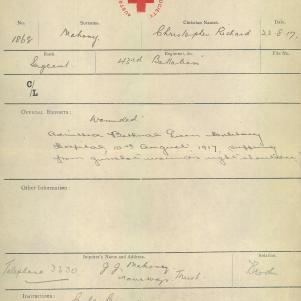 SOCIETY
No.
Surname.
Christian Names.
Date
1868
Mahony
Christopher Richard
22-8-17
Rank
Regiment, &c.
File No.
Sergeant
43rd Battalion
C/L
OFFICIAL REPORTS:
Wounded.
Admitted Bethnal Green Military
Hospital 10th August, 1917, suffering
from gunshot wounds right shoulder.
Other Information:
Inquirer's Name and Address.
Relation
Telephone 3230
J. J. Mahoney
Tramways Trust.
Brother
Instructions